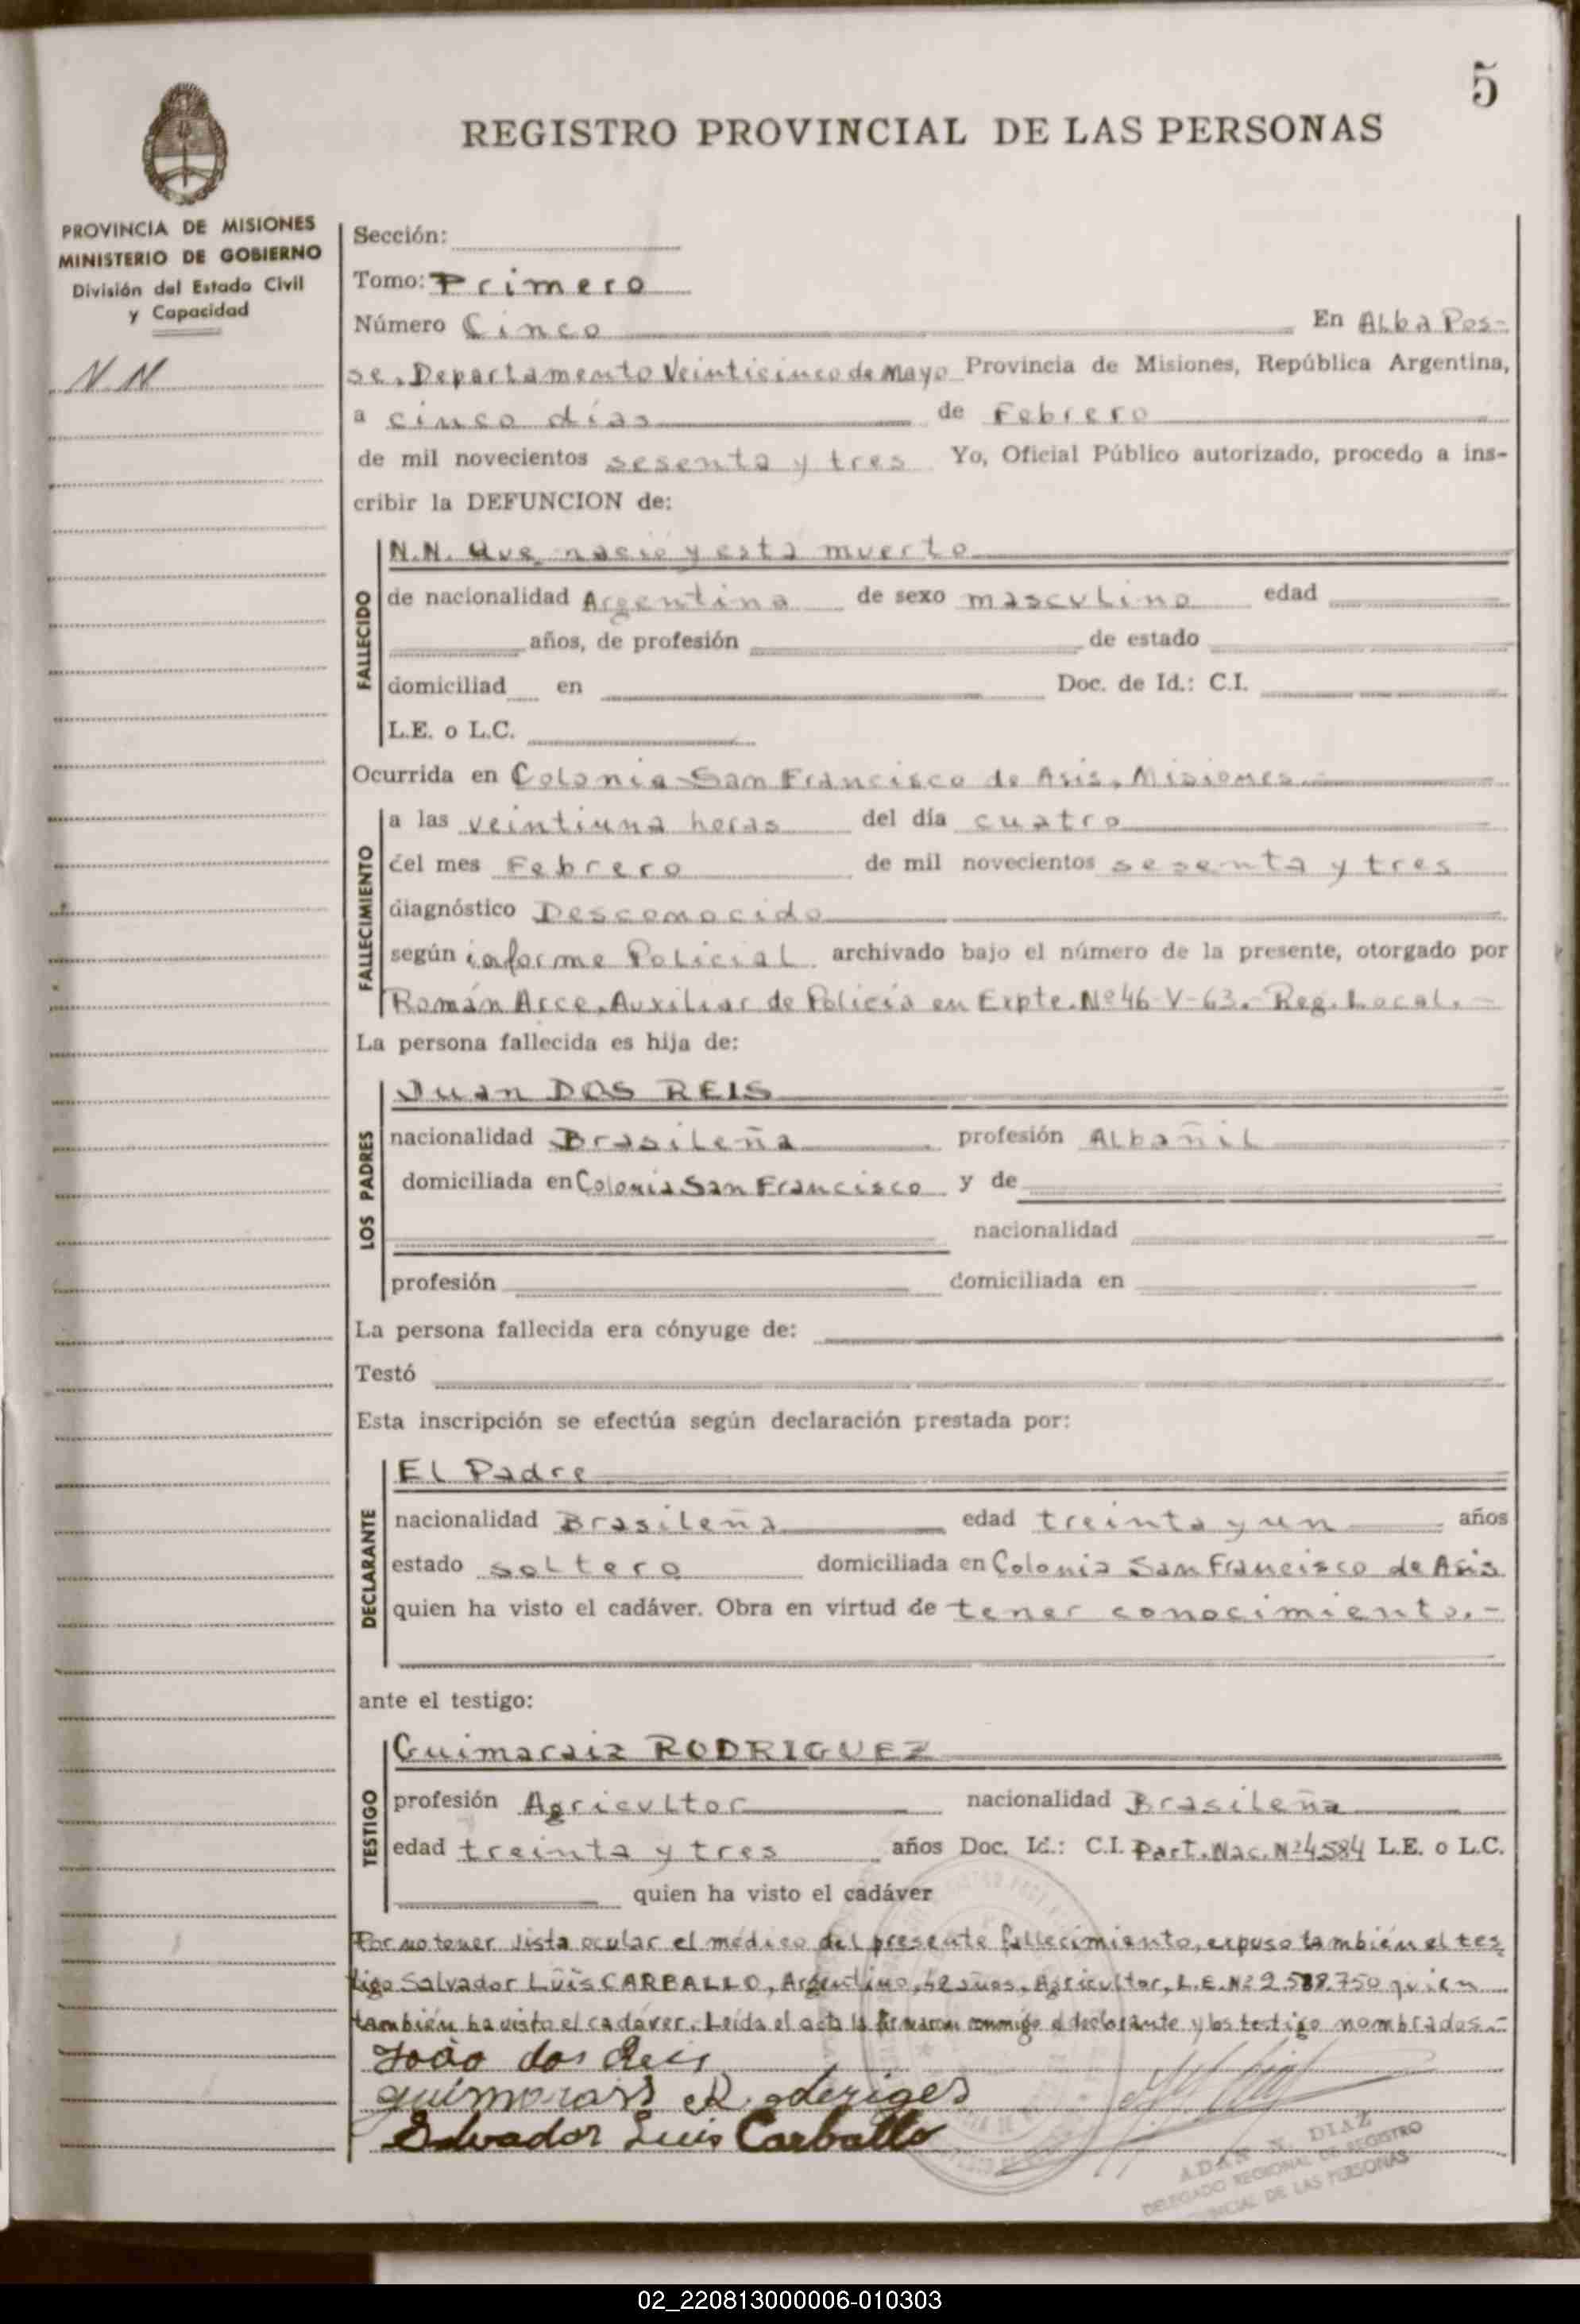 5
REGISTRO PROVINCIAL DE LAS PERSONAS
PROVINCIA DE MISIONES
MINISTERIO DE GOBIERNO
División del Estado Civil
y Capacidad
N N
Sección:
Tomo: Primero
Número Cinco En Alba Pos-
se. Departamento Veinticinco de Mayo Provincia de Misiones, República Argentina,
a cinco días de Febrero
de mil novecientos sesenta y tres Yo, Oficial Público autorizado, procedo a ins-
cribir la DEFUNCION de:
FALLECIDO
N.N. Que nació y está muerto
de nacionalidad Argentina de sexo masculino edad
años, de profesión de estado
domiciliad en Doc. de Id.: C.I.
L.E. o L.C.
Ocurrida en Colonia San Francisco de Asis, Misiones.-
FALLECIMIENTO
a las veintiuna horas del día cuatro
del mes Febrero de mil novecientos sesenta y tres
diagnóstico Desconocido
según informe Policial archivado bajo el número de la presente, otorgado por
Román Arce, Auxiliar de Policía en Expte. Nº 46-V-63.- Reg. Local.-
La persona fallecida es hija de:
LOS PADRES
Juan DOS REIS
nacionalidad Brasileña profesión Albañil
domiciliada en Colonia San Francisco y de
nacionalidad
profesión domiciliada en
La persona fallecida era cónyuge de:
Testó
Esta inscripción se efectúa según declaración prestada por:
DECLARANTE
El Padre
nacionalidad Brasileña edad treinta y un años
estado soltero domiciliada en Colonia San Francisco de Asis
quien ha visto el cadáver. Obra en virtud de tener conocimiento.-
ante el testigo:
TESTIGO
Guimaraiz RODRIGUEZ
profesión Agricultor nacionalidad Brasileña
edad treinta y tres años Doc. Id.: C.I. Part. Nac. Nº 4584 L.E. o L.C.
quien ha visto el cadáver
Por no tener vista ocular el médico del presente fallecimiento, expuso también el tes
tigo Salvador Luis CARBALLO, Argentino, años, Agricultor, L.E. Nº quien
también ha visto el cadáver. Leída el acta la firmaron conmigo el declarante y los testigo nombrados.-
João dos Reis
guimorais Roderiges
Salvador Luis Carballo
ADAN DIAZ
DELEGADO REGIONAL DE REGISTRO
DE LAS PERSONAS
02_220813000006-010303